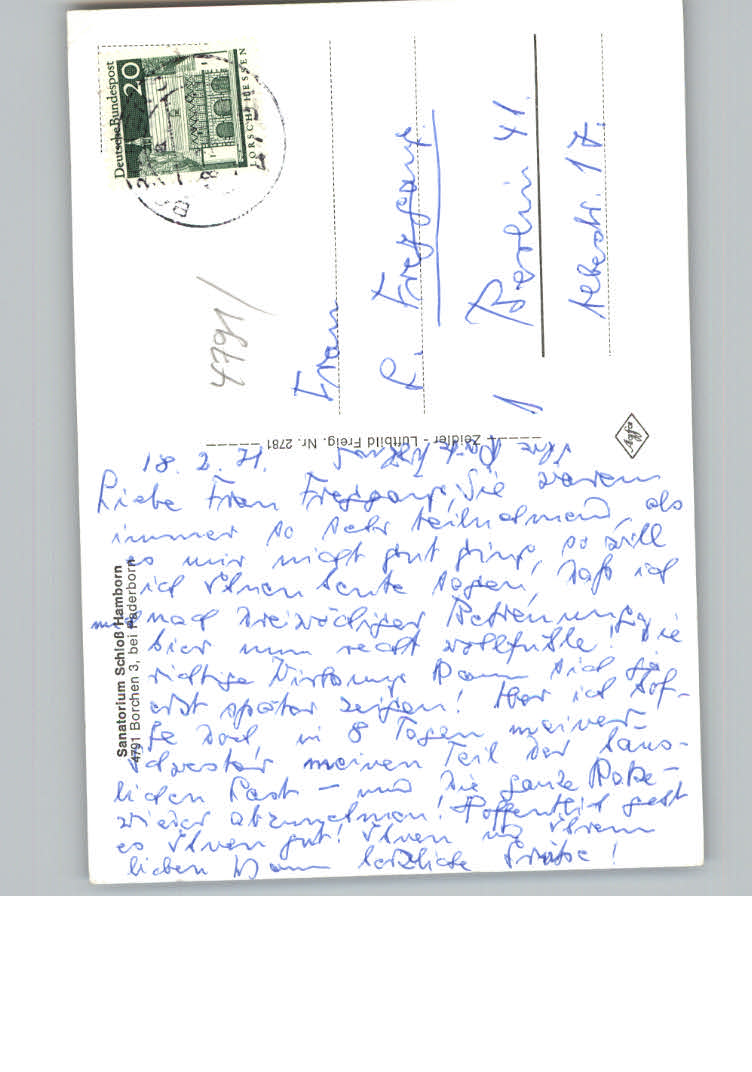 Deutsche Bundespost
20
LORSCH/HESSEN
4791/
Frau
Berlin 41.
Albestr. 17.
Agfa
Zeidler - Luftbild Freig. Nr. 2781
Sanatorium Schloß Hamborn
4791 Borchen 3, bei Paderborn
18. 2. 71.
Ihre
Liebe Frau Freygang, Sie waren
immer so sehr teilnehmend, als
es mir nicht gut ging, so will
ich Ihnen heute sagen, daß ich
mich nach dreiwöchiger Betreuung
hier nun recht wohlfühle! Die
richtige Wirkung kann sich ja
erst später zeigen! Aber ich hof-
fe doch, in 8 Tagen meiner
Schwester meinen Teil der häus-
lichen Last – und die ganze
wieder abzunehmen! Hoffentlich geht
es Ihnen gut! Ihnen und Ihrem
lieben Mann herzliche Grüße!